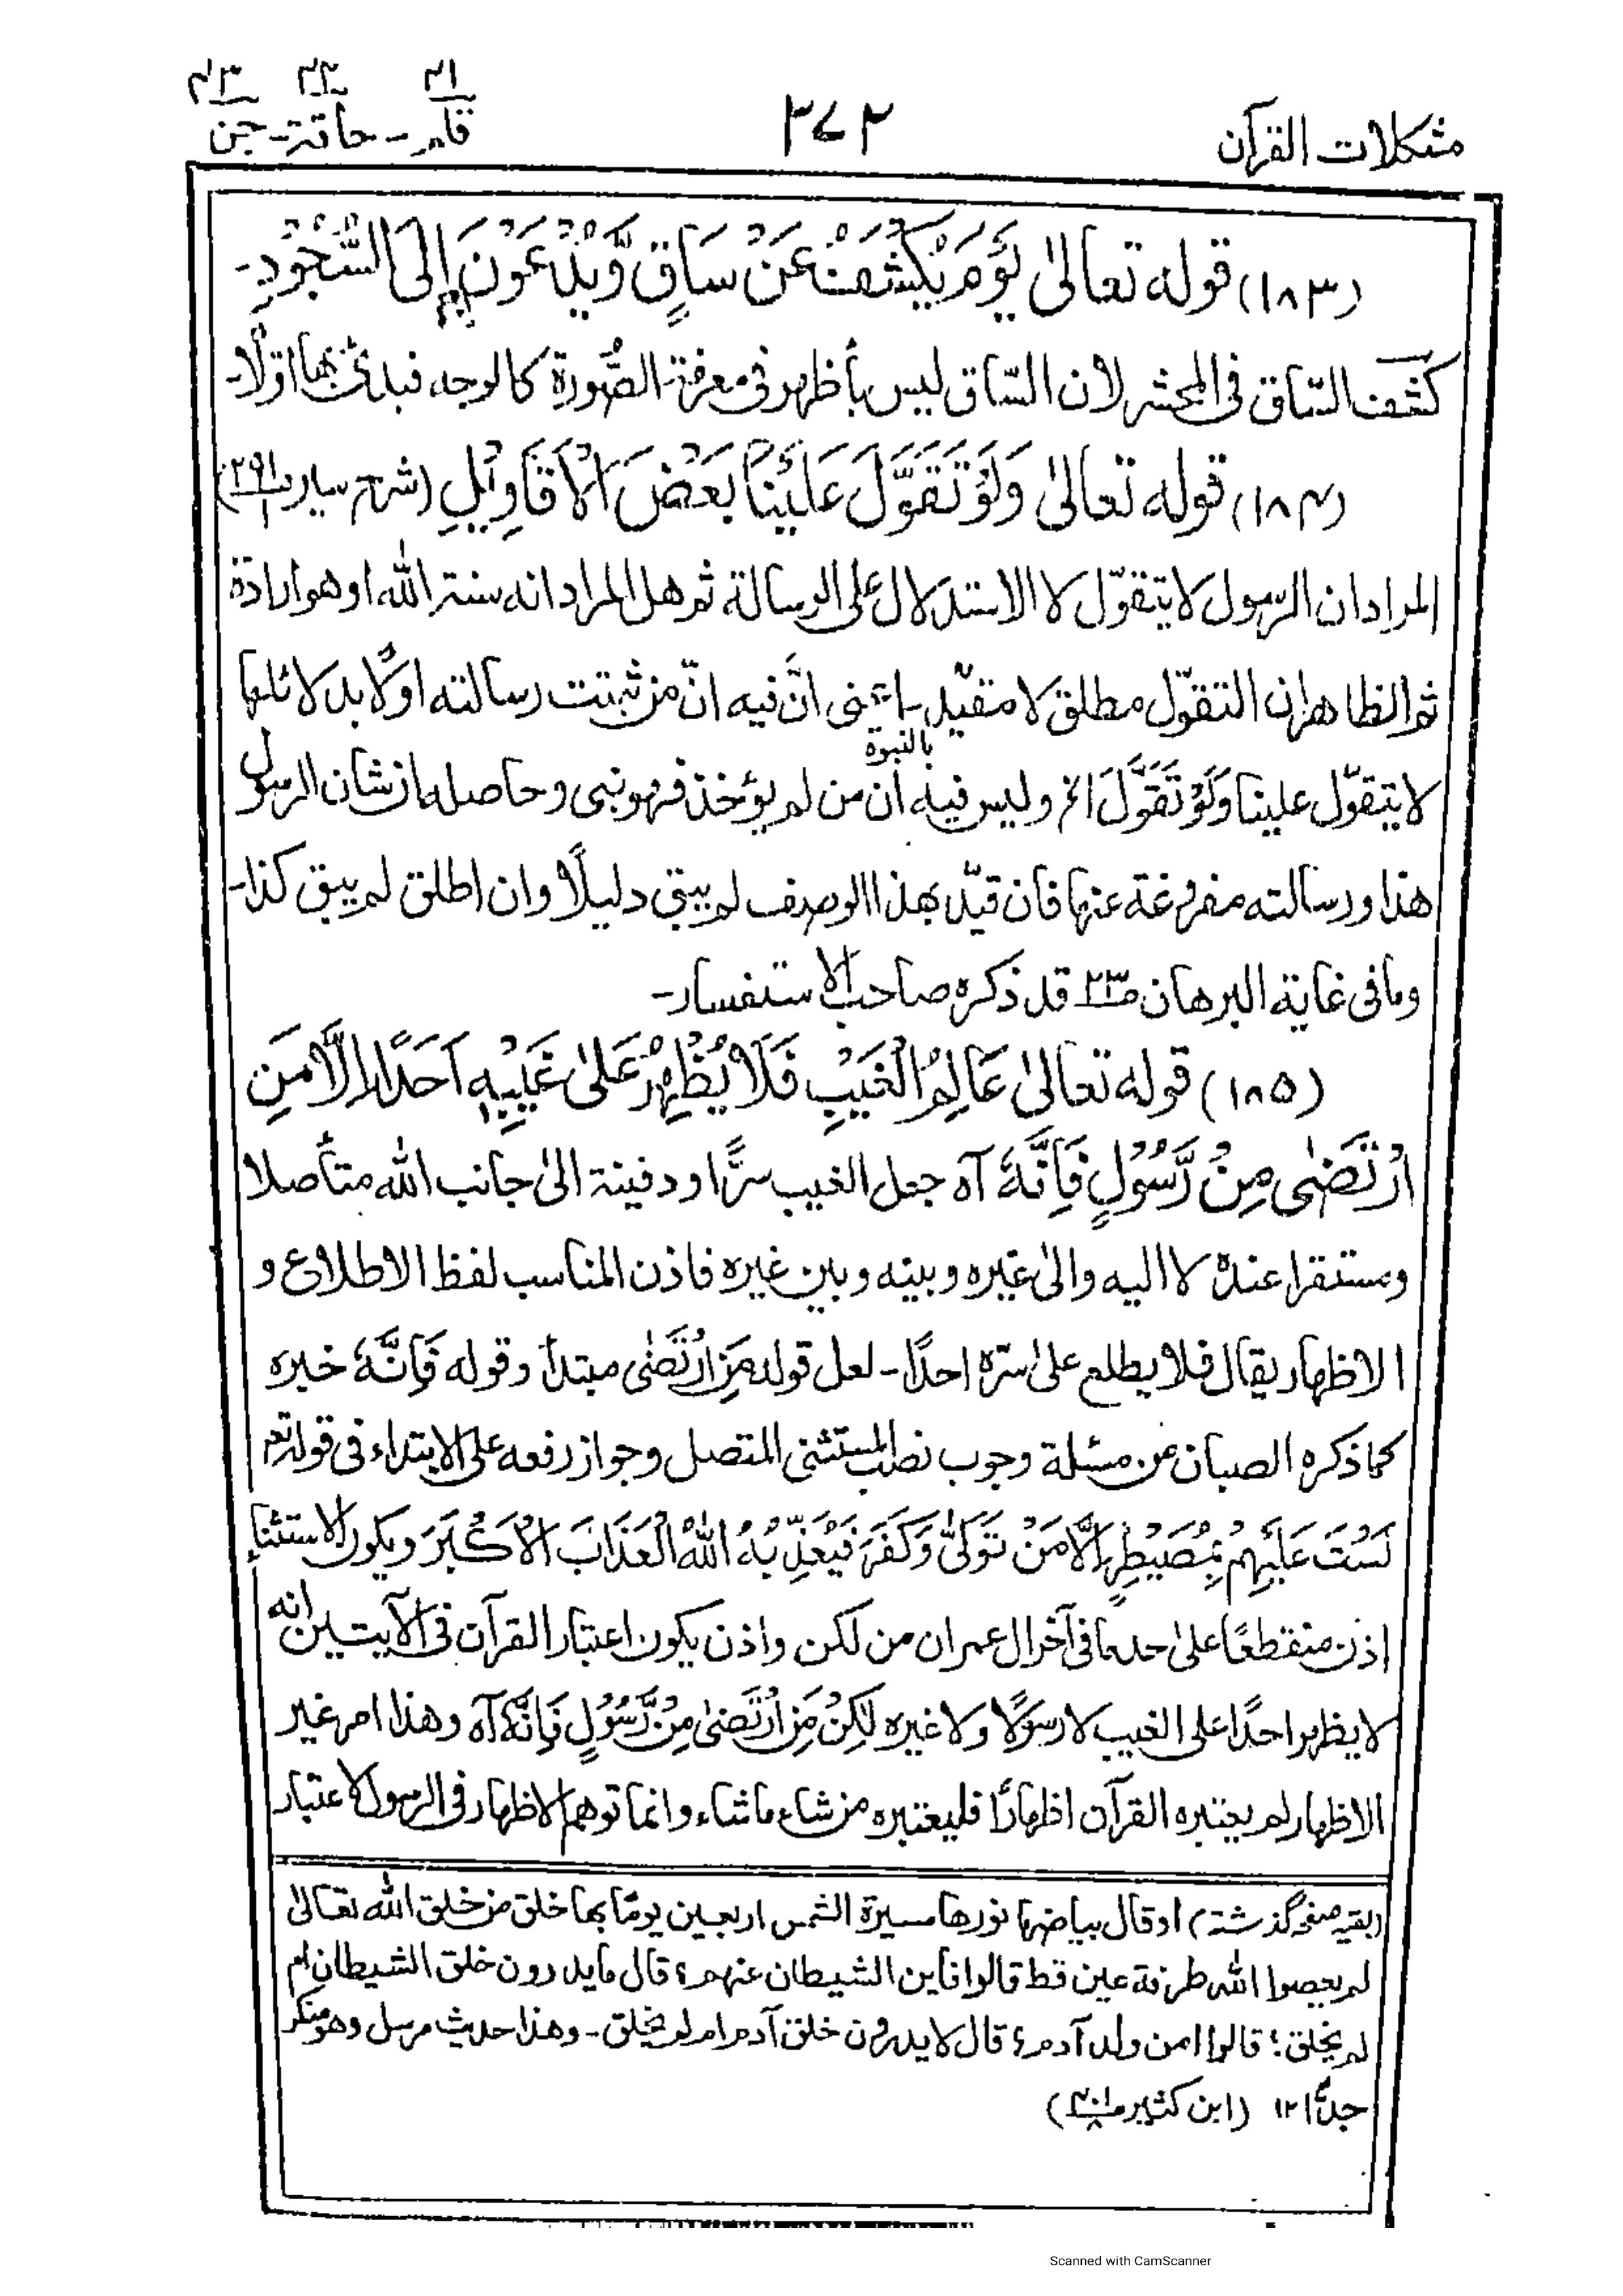 مشكلات القرآن
٣٧٢
٢١ ٢٢ ٢٣
قلم - حاقة - جن
(١٨٣) قوله تعالىٰ يَوْمَ يُكْشَفُ عَنْ سَاقٍ وَّيُدْعَوْنَ إِلَى السُّجُوْدِ -
كشف السّاق فى المحشر لان السّاق ليس بأظهر فى معرفة الصُّورة كالوجه فبدئ بها اوّلًا -
(١٨٤) قوله تعالىٰ وَلَوْ تَقَوَّلَ عَلَيْنَا بَعْضَ الْاَقَاوِيْلِ (شرح سير ٢٩١/١)
المراد ان الرسول لا يتقوّل لا الاستدلال على الرسالة ثم هل المراد انه سنة الله او هو ارادة
ثم الظاهر ان التقوّل مطلق لا مقيّد - اعنى انّ فيه انّ من ثبتت رسالته اولًا بدلائلها
بالنبوة
لا يتقوّل علينا وَلَوْ تَقَوَّلَ الخ وليس فيه ان من لم يؤخذ فهو نبى وحاصله ان شان الرسول
هذا ورسالته مفروغة عنها فان قيّد بهذا الوصف لم يبق دليلًا وان اطلق لم يبق كذا -
وما فى غاية البرهان ص٢٣ قد ذكره صاحب الاستفسار -
(١٨٥) قوله تعالىٰ عَالِمُ الْغَيْبِ فَلَا يُظْهِرُ عَلىٰ غَيْبِهٖ اَحَدًا اِلَّا مَنِ
ارْتَضٰى مِنْ رَّسُوْلٍ فَاِنَّهٗ آه جعل الغيب سرًّا ودفينة الىٰ جانب الله متأصلا
ومستقرا عنده لا اليه والىٰ غيره وبينه وبين غيره فاذن المناسب لفظ الاطلاع و
الاظهار يقال فلا يطلع علىٰ سرّه احدًا - لعل قوله مَنِ ارْتَضٰى مبتدأ وقوله فَاِنَّهٗ خبره
كما ذكره الصبان من مسئلة وجوب نصب المستثنى المتصل وجواز رفعه على الابتداء فى قوله تعـ
لَسْتَ عَلَيْهِمْ بِمُصَيْطِرٍ اِلَّا مَنْ تَوَلّٰى وَكَفَرَ فَيُعَذِّبُهُ اللهُ الْعَذَابَ الْاَكْبَرَ ويكون الاستثناء
اذن منقطعًا علىٰ حد ما فى آخر ال عمران من لكن واذن يكون اعتبار القرآن فى الآيتين انه
لا يظهر احدًا على الغيب لا رسولًا ولا غيره لٰكِنْ مَنِ ارْتَضٰى مِنْ رَّسُوْلٍ فَاِنَّهٗ آه وهذا امر غير
الاظهار لم يعتبره القرآن اظهارًا فليعتبره من شاء ما شاء وانما توهم الاظهار فى الرسول لاعتبار
(بقيه صفحه گذشته) او قال بياضها نورها مسيرة الشمس اربعين يومًا بها خلق من خلق الله تعالىٰ
لم يعصوا الله طرفة عين قط قالوا فاين الشيطان عنهم؟ قال ما يدرون خلق الشيطان ام
لم يخلق؟ قالوا امن ولد آدم؟ قال لا يدرون خلق آدم ام لم يخلق - وهذا حديث مرسل وهو منكر
جدًّا ١٢ (ابن كثير)
Scanned with CamScanner